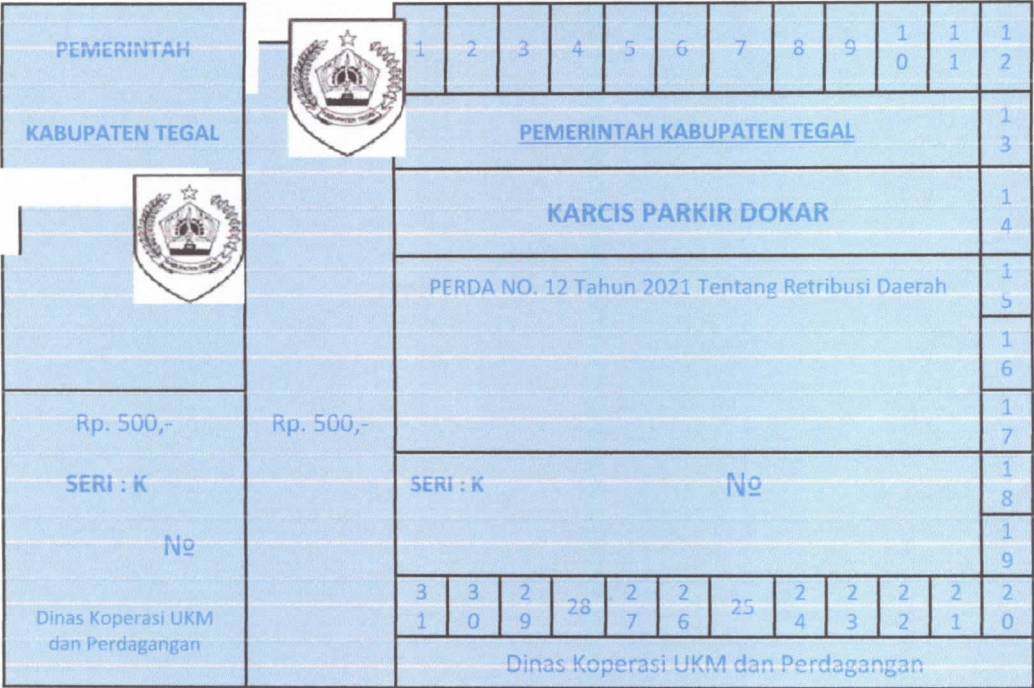 PEMERINTAH
KABUPATEN TEGAL
KABUPATEN TEGAL
Rp. 500,-
SERI : K
№
Dinas Koperasi UKM
dan Perdagangan
KABUPATEN TEGAL
Rp. 500,-
1 2 3 4 5 6 7 8 9 10 11 12
PEMERINTAH KABUPATEN TEGAL
13
KARCIS PARKIR DOKAR
14
PERDA NO. 12 Tahun 2021 Tentang Retribusi Daerah
15
16
17
SERI : K №
18
19
31 30 29 28 27 26 25 24 23 22 21 20
Dinas Koperasi UKM dan Perdagangan